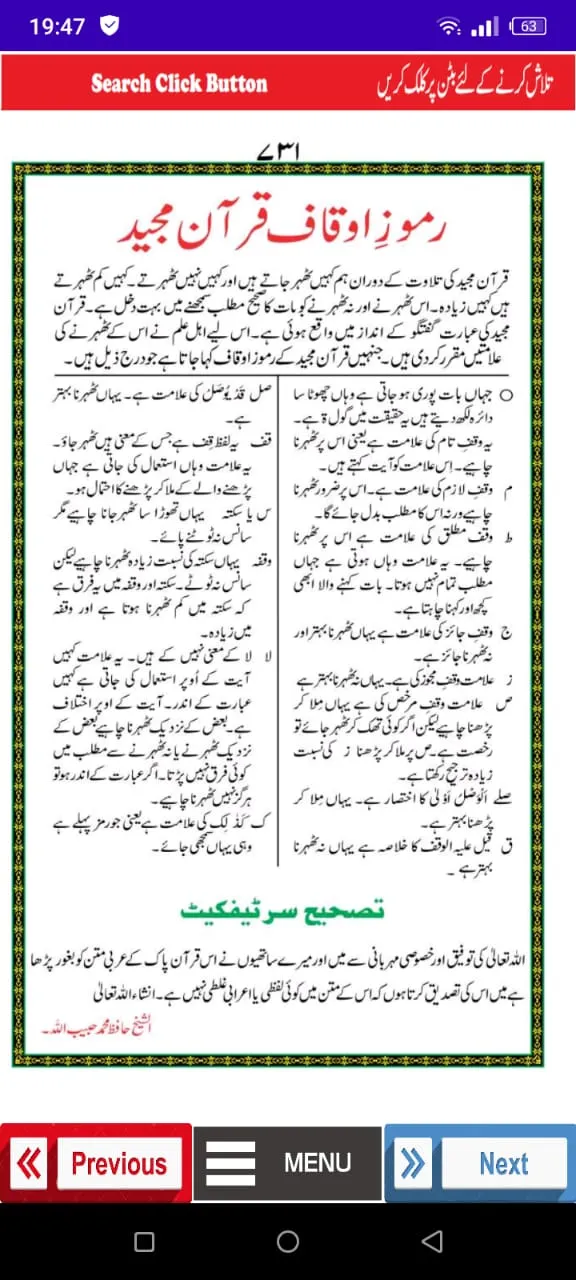 19:47
63
Search Click Button
تلاش کرنے کے لئے بٹن پر کلک کریں
۷۳۱
رموزِ اوقاف قرآن مجید
قرآن مجید کی تلاوت کے دوران ہم کہیں ٹھہر جاتے ہیں اور کہیں نہیں ٹھہرتے ۔ کہیں کم ٹھہرتے
ہیں کہیں زیادہ۔ اس ٹھہرنے اور نہ ٹھہرنے کو بات کا صحیح مطلب سمجھنے میں بہت دخل ہے۔ قرآن
مجید کی عبارت گفتگو کے انداز میں واقع ہوئی ہے۔ اس لیے اہل علم نے اس کے ٹھہرنے کی
علامتیں مقرر کردی ہیں۔ جنہیں قرآن مجید کے رموز اوقاف کہا جاتا ہے جو درج ذیل ہیں۔
○ جہاں بات پوری ہو جاتی ہے وہاں چھوٹا سا
دائرہ لکھ دیتے ہیں یہ حقیقت میں گول ۃ ہے۔
یہ وقفِ تام کی علامت ہے یعنی اس پر ٹھہرنا
چاہیے۔ اِس علامت کو آیت کہتے ہیں۔
م وقفِ لازم کی علامت ہے۔ اس پر ضرور ٹھہرنا
چاہیے ورنہ اس کا مطلب بدل جائے گا۔
ط وقفِ مطلق کی علامت ہے اس پر ٹھہرنا
چاہیے۔ یہ علامت وہاں ہوتی ہے جہاں
مطلب تمام نہیں ہوتا۔ بات کہنے والا ابھی
کچھ اور کہنا چاہتا ہے۔
ج وقفِ جائز کی علامت ہے یہاں ٹھہرنا بہتر اور
نہ ٹھہرنا جائز ہے۔
ز علامت وقفِ مجوز کی ہے۔ یہاں نہ ٹھہرنا بہتر ہے
ص علامت وقفِ مرخص کی ہے یہاں مِلا کر
پڑھنا چاہیے لیکن اگر کوئی تھک کر ٹھہر جائے تو
رخصت ہے۔ ص پر ملا کر پڑھنا ز کی نسبت
زیادہ ترجیح رکھتا ہے۔
صلے اَلْوَصْلُ اَوْلٰی کا اختصار ہے۔ یہاں مِلا کر
پڑھنا بہتر ہے۔
ق قیل علیہ الوقف کا خلاصہ ہے یہاں نہ ٹھہرنا
بہتر ہے ۔
صل قَدْ یُوْصَلُ کی علامت ہے۔ یہاں ٹھہرنا بہتر
ہے۔
قف یہ لفظ قِف ہے جس کے معنٰی ہیں ٹھہر جاؤ۔
یہ علامت وہاں استعمال کی جاتی ہے جہاں
پڑھنے والے کے ملا کر پڑھنے کا احتمال ہو۔
س یا سکتہ یہاں تھوڑا سا ٹھہر جانا چاہیے مگر
سانس نہ ٹوٹنے پائے۔
وقفہ یہاں سکتہ کی نسبت زیادہ ٹھہرنا چاہیے لیکن
سانس نہ ٹوٹے۔ سکتہ اور وقفہ میں یہ فرق ہے
کہ سکتہ میں کم ٹھہرنا ہوتا ہے اور وقفہ
میں زیادہ۔
لا لا کے معنٰی نہیں کے ہیں۔ یہ علامت کہیں
آیت کے اُوپر استعمال کی جاتی ہے کہیں
عبارت کے اندر۔ آیت کے اوپر اختلاف
ہے۔ بعض کے نزدیک ٹھہرنا چاہیے بعض کے
نزدیک ٹھہرنے یا نہ ٹھہرنے سے مطلب میں
کوئی فرق نہیں پڑتا۔ اگر عبارت کے اندر ہو تو
ہرگز نہیں ٹھہرنا چاہیے۔
ک کَذٰلِکَ کی علامت ہے یعنی جو رمز پہلے ہے
وہی یہاں سمجھی جائے۔
تصحیح سرٹیفکیٹ
اللہ تعالیٰ کی توفیق اور خصوصی مہربانی سے میں اور میرے ساتھیوں نے اس قرآن پاک کے عربی متن کو بغور پڑھا
ہے میں اس کی تصدیق کرتا ہوں کہ اس کے متن میں کوئی لفظی یا اعرابی غلطی نہیں ہے۔ انشاء اللہ تعالیٰ
الشیخ حافظ محمد حبیب اللہ۔
Previous
MENU
Next